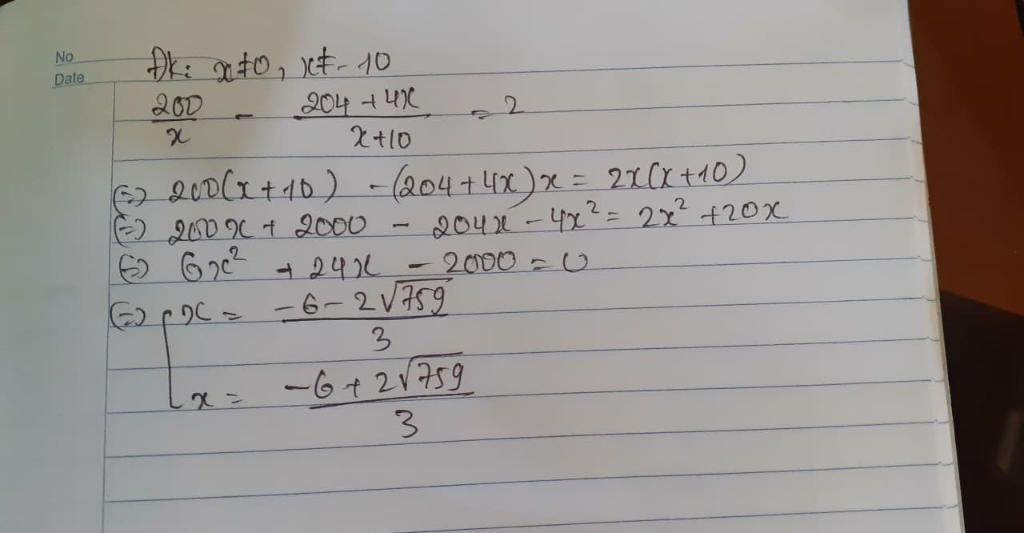 No
Date
Đk: x≠0, x≠-10
200/x - (204+4x)/(x+10) = 2
(=) 200(x+10) - (204+4x)x = 2x(x+10)
(=) 200x + 2000 - 204x - 4x² = 2x² + 20x
(=) 6x² + 24x - 2000 = 0
(=) [ x = (-6-2√759)/3
x = (-6+2√759)/3